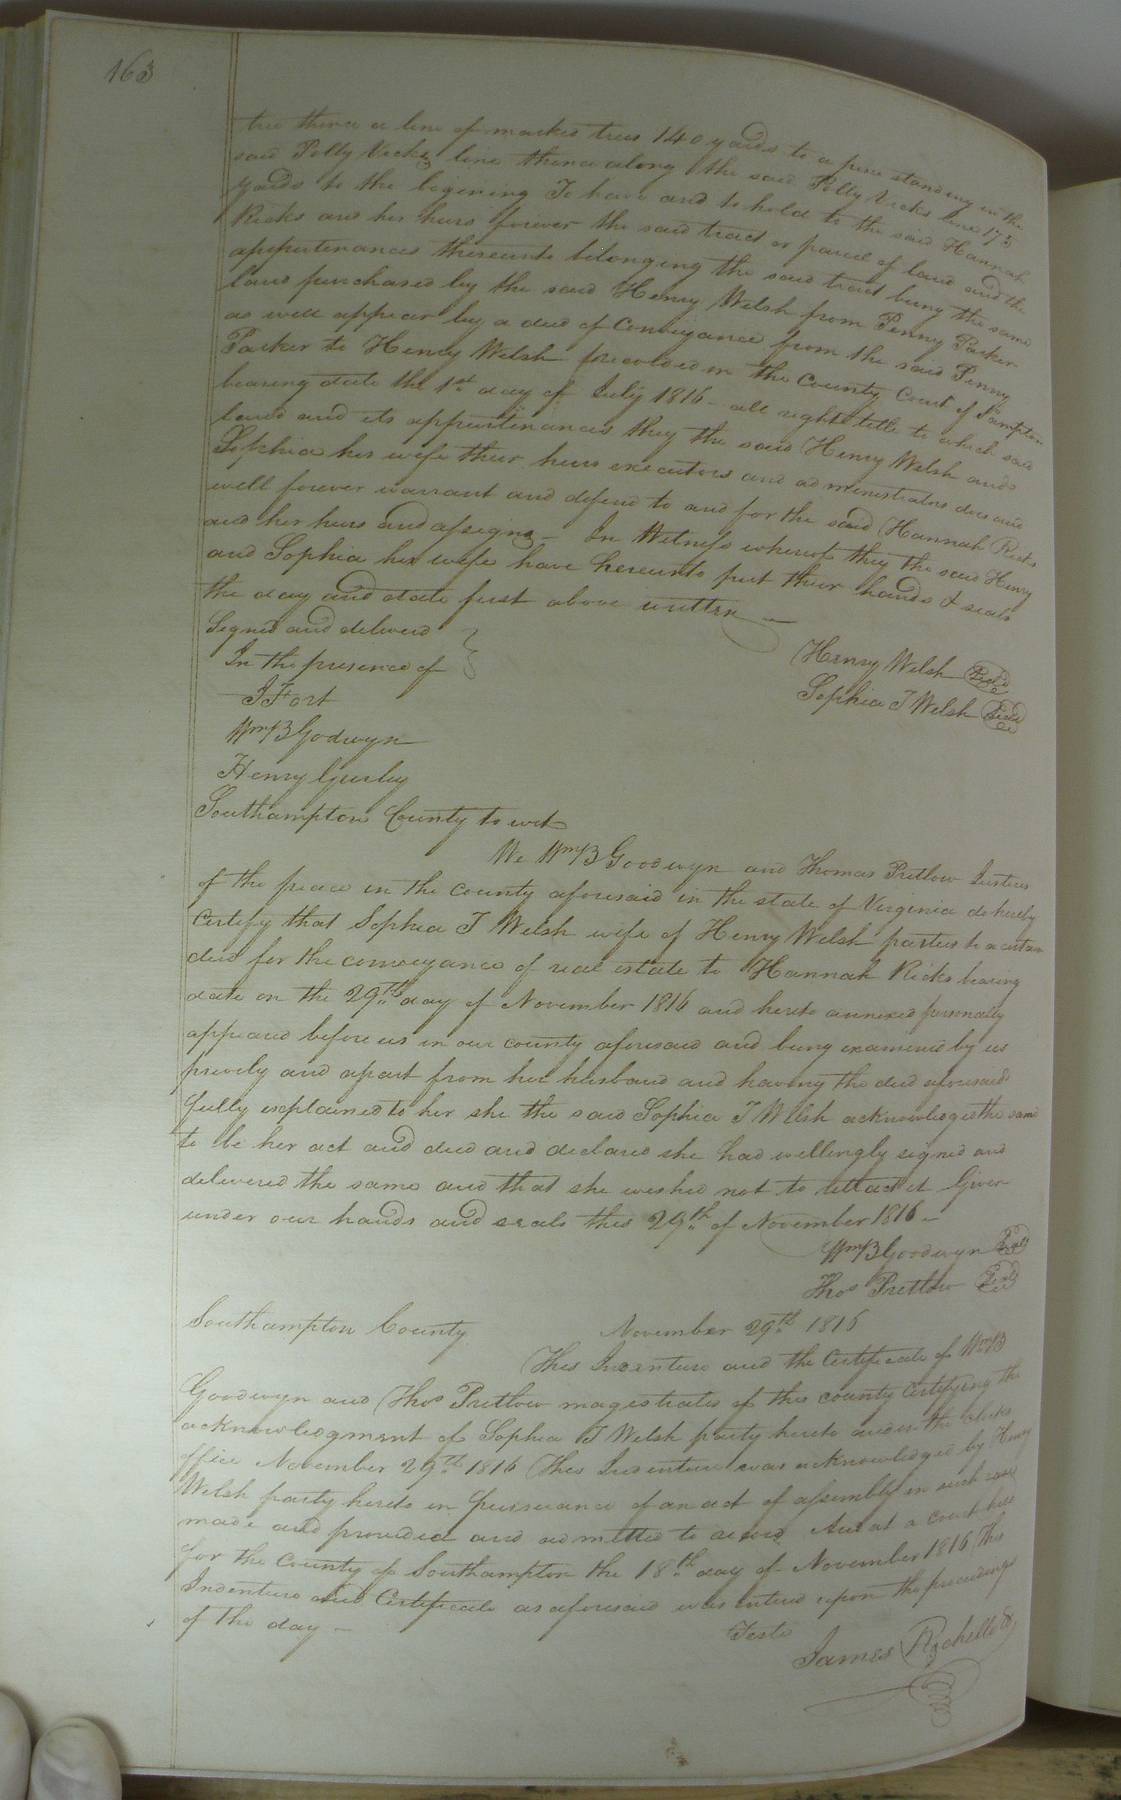 163
tree thence a line of markes trees 140 yards to a pine standing in the
said Polly Vicks line thence along the said Polly Vicks line 175
yards to the begining To have and to hold to the said Hannah
Ricks and her heirs forever the said tract or parcel of land and the
appurtenances thereunto belonging the said tract being the same
land purchased by the said Henry Welsh from Penny Parker
as well appear by a deed of Conveyance from the said Penny
Parker to Henry Welsh recorded in the County Court of Sampton
bearing date the 1st day of July 1816 - all right & title to which said
land and its appurtinances they the said Henry Welsh and
Sophia his wife their heirs executors and administrators does and
will forever warrant and defend to and for the said Hannah Ricks
and her heirs and assigns - In Witness whereof they the said Henry
and Sophia his wife have hereunto put their hands & seals
the day and date first above written -
Signed and delivered
In the presence of
J Fort
Wm B Godwyn
Henry Gurley
Henry Welsh Seal
Sophia T Welsh Seal
Southampton County to wit
We Wm B Goodwyn and Thomas Pretlow Justices
of the peace in the county aforesaid in the state of Virginia do hereby
Certify that Sophia T Welsh wife of Henry Welsh parties to a certain
deed for the conveyance of real estate to Hannah Ricks bearing
date on the 29th day of November 1816 and hereto annexed personally
appeard before us in our county aforesaid and being examined by us
privily and apart from her husband and having the deed aforesaid
fully explained to her she the said Sophia T Welsh acknowledges the same
to be her act and deed and declared she had willingly signed and
delivered the same and that she wished not to retract it Given
under our hands and seals this 29th of November 1816 -
Wm B Goodwyn Seal
Thos Pretlow Seal
Southampton County November 29th 1816
This Indenture and the Certificate of Wm B
Goodwyn and Thos Pretlow magistrates of this county Certifying the
acknowledgment of Sophia T Welsh party hereto under the clerks
office November 29th 1816 This Indenture was acknowledged by Henry
Welsh party hereto in pursuance of an act of assembly in such case
made and provided and admitted to record And at a court held
for the County of Southampton the 18th day of November 1816 This
Indenture and Certificate as aforesaid was entered upon the proceedings
of the day -
Teste
James Rochelle